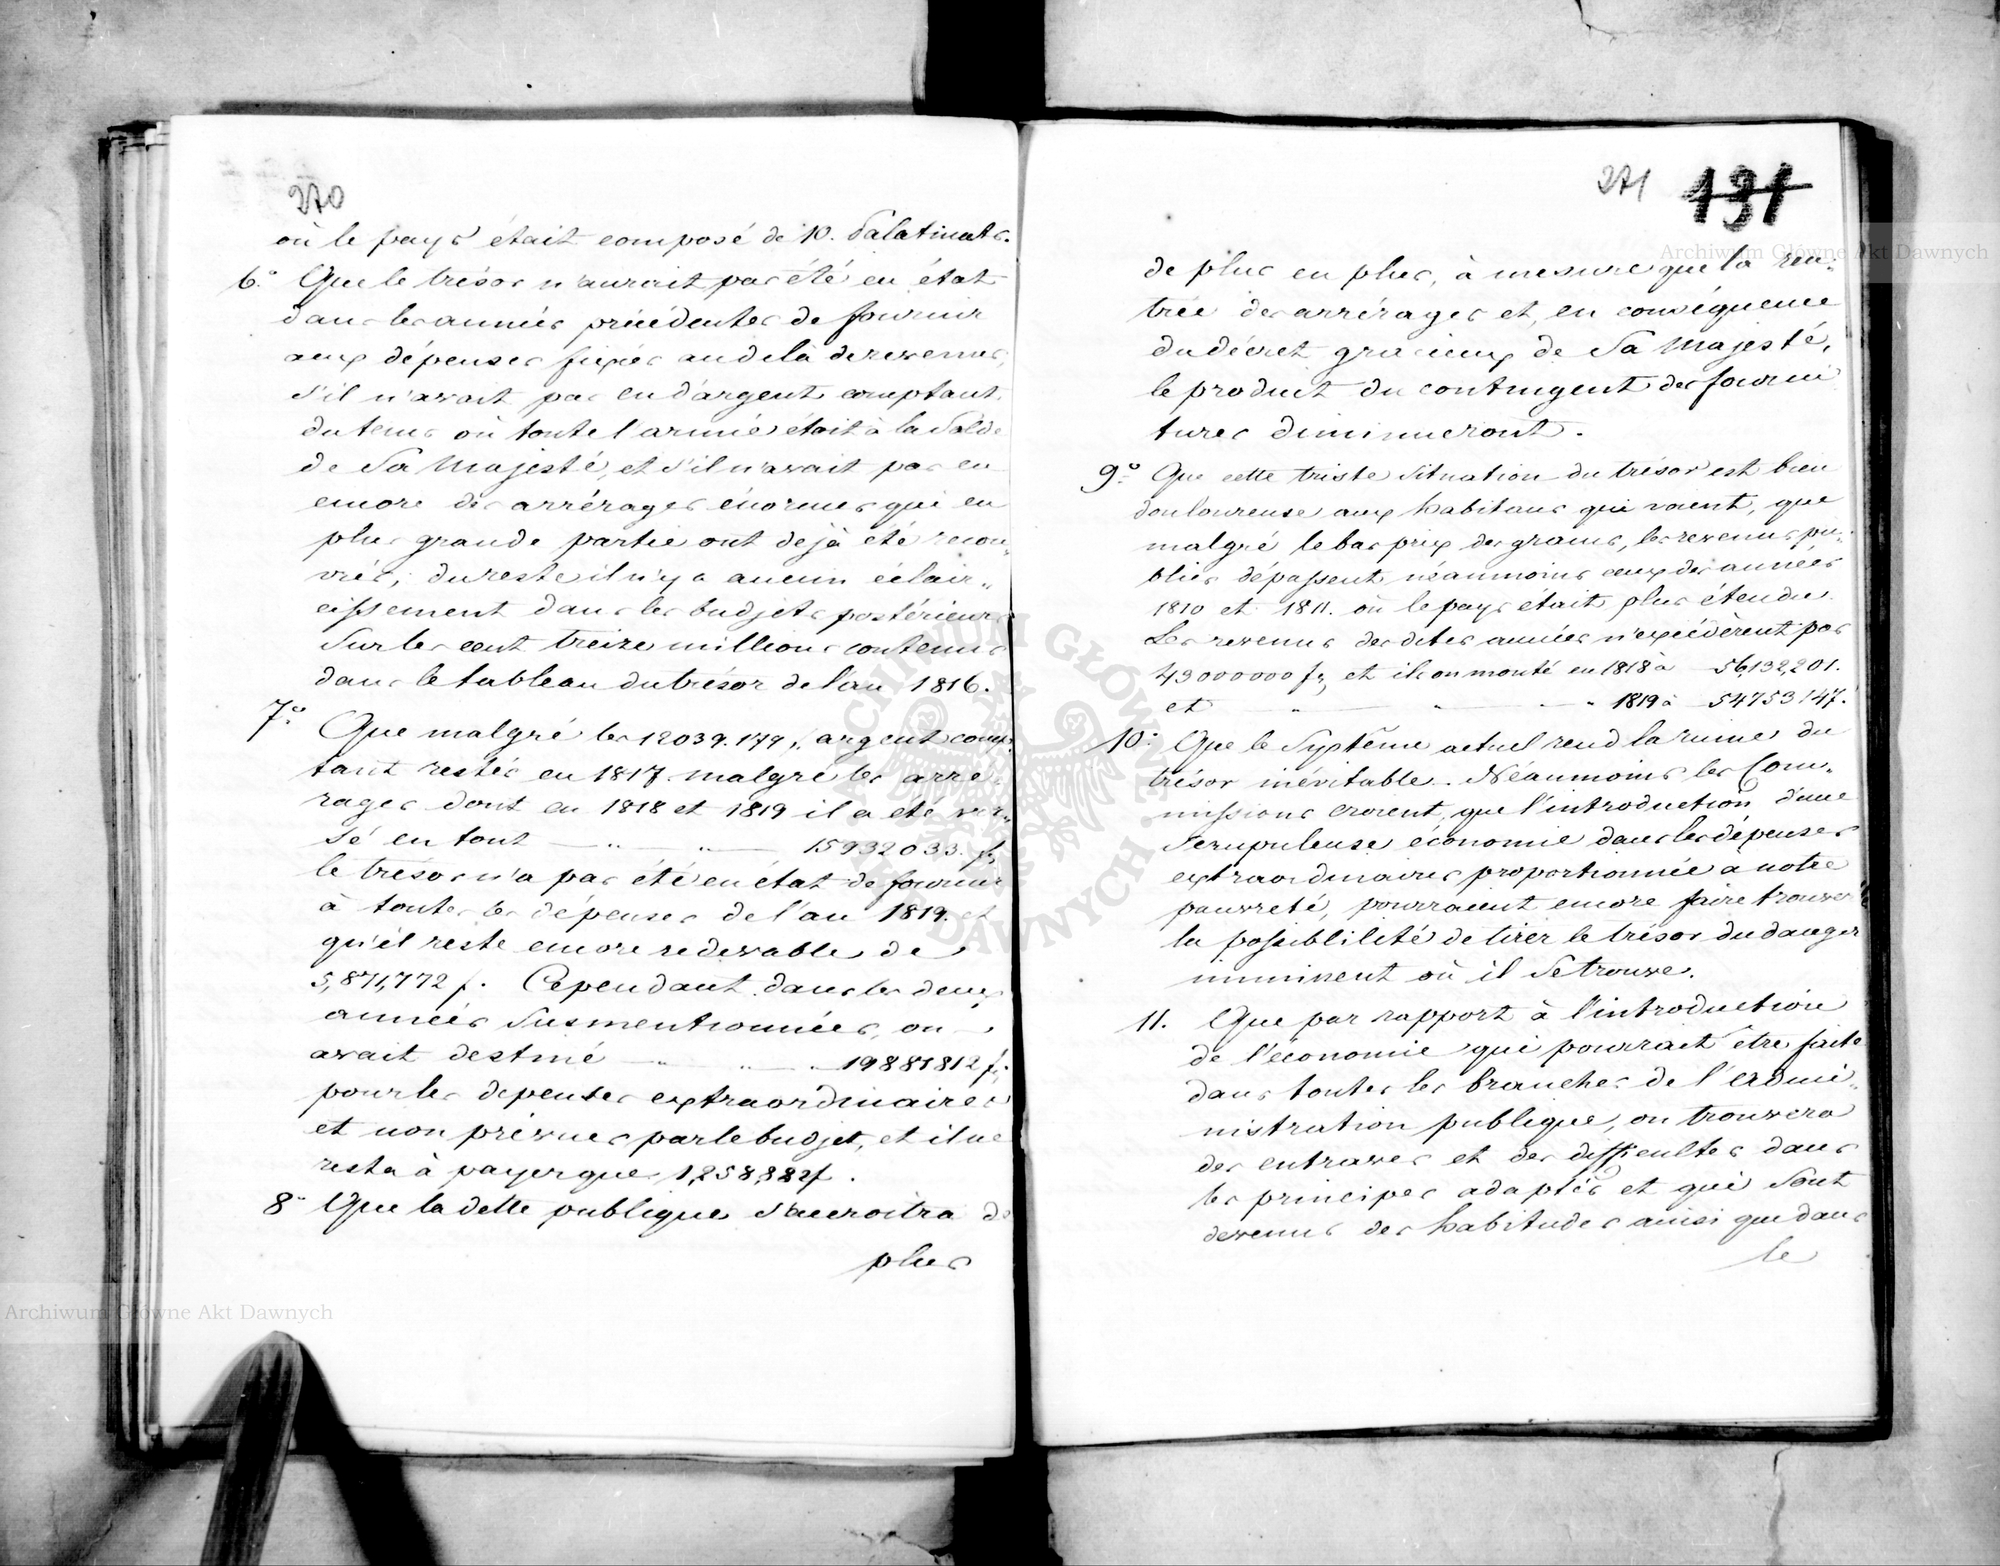 270
où le pays était composé de 10. Palatinats.
6.° Que le trésor n'aurait pas été en état
dans les années précédentes de fournir
aux dépenses fixées au delà de revenus,
s'il n'avait pas eu d'argent comptant
du tems où toute l'armée était à la Solde
de Sa Majesté, et s'il n'avait pas eu
encore des arrérages énormes qui en
plus grande partie ont déjà été recou„
vrés; du reste il n'y a aucun éclair„
cissement dans les budjets postérieurs
sur les cent treize millions contenus
dans le tableau du trésor de l'an 1816.
7.° Que malgré les 12039.179, argent comp„
tant restés en 1817. malgré les arré„
rages dont en 1818 et 1819 il a été ver„
sé en tout — „ — „ — 15932033. f,
le trésor n'a pas été en état de fournir
à toutes les dépenses de l'an 1819. et
qu'il reste encore redevable de
5,871,772 f. Cependant dans les deux
années susmentionnées, on
avait destiné — „ — „ — „ 19881812 f,
pour les depenses extraordinaires
et non prévues par le budjet, et il ne
resta à payer que 1,258,882 f.
8° Que la dette publique s'accroitra de
plus
271 131
de plus en plus, à mesure que la ren„
trée des arrérages et, en conséquence
du décret gracieux de Sa Majesté,
le produit du contingent des fourni
tures diminueront.
9.° Que cette triste situation du trésor est bien
douloureuse aux habitans qui voient, que
malgré le bas prix des grains, les revenus pu„
blics dépassent néanmoins ceux des années
1810 et 1811. où le pays était plus étendu.
Les revenus des dites années n'excédèrent pas
43000000 f, et ils on monté en 1818 à 56,132,201.
et — „ — „ — „ 1819 à 54753147.
10.° Que le Systême actuel rend la ruine du
trésor inévitable. Néanmoins les Com„
missions croient, que l'introduction d'une
scrupuleuse économie dans les dépenses
extraordinaires proportionnée a notre
pauvreté, pourraient encore faire trouver
la possiblilité de tirer le trésor du danger
imminent où il se trouve.
11. Que par rapport à l'introduction
de l'économie qui pourrait être faite
dans toutes les branches de l'admi„
nistration publique, on trouvera
des entraves et des difficultés dans
les principes adaptés et qui sont
devenus des habitudes ainsi que dans
le
Archiwum Główne Akt Dawnych
Archiwum Główne Akt Dawnych
ARCHIWUM GŁÓWNE AKT DAWNYCH